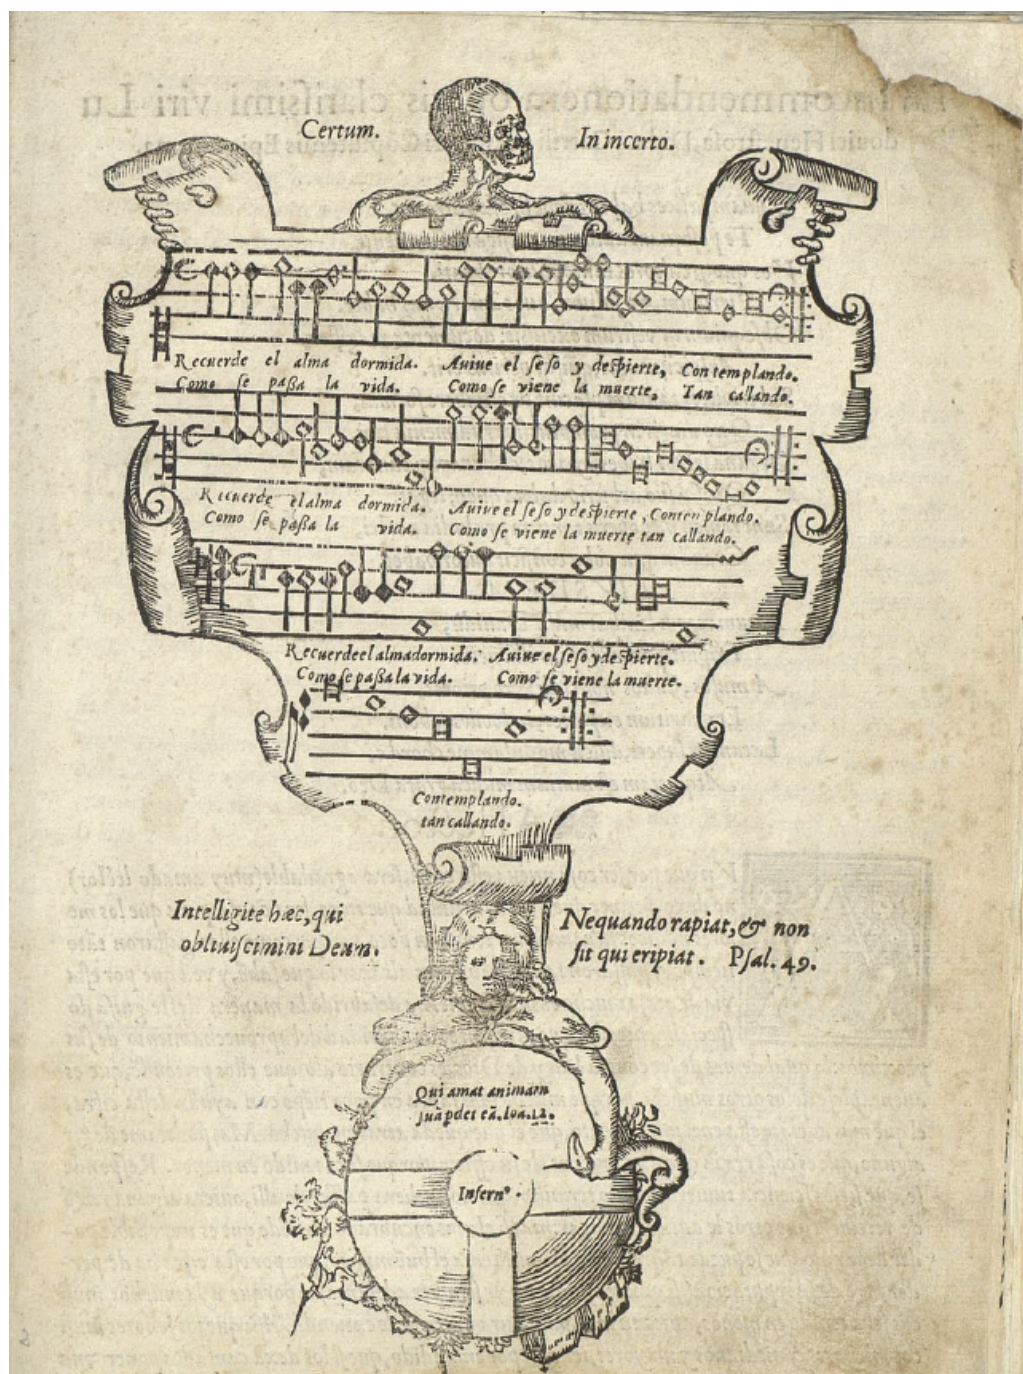 Certum.
In incerto.
Recuerde el alma dormida. Auiue el seso y despierte, Contemplando.
Como se passa la vida. Como se viene la muerte, Tan callando.
Recuerde el alma dormida. Auiue el seso y despierte, Contemplando.
Como se passa la vida. Como se viene la muerte tan callando.
Recuerde el alma dormida. Auiue el seso y despierte.
Como se passa la vida. Como se viene la muerte.
Contemplando.
tan callando.
Intelligite hæc, qui
obliuiscimini Deum.
Nequando rapiat, & non
sit qui eripiat. Psal. 49.
Qui amat animam
suã pdet eã. Ioã. 12.
Infernº.